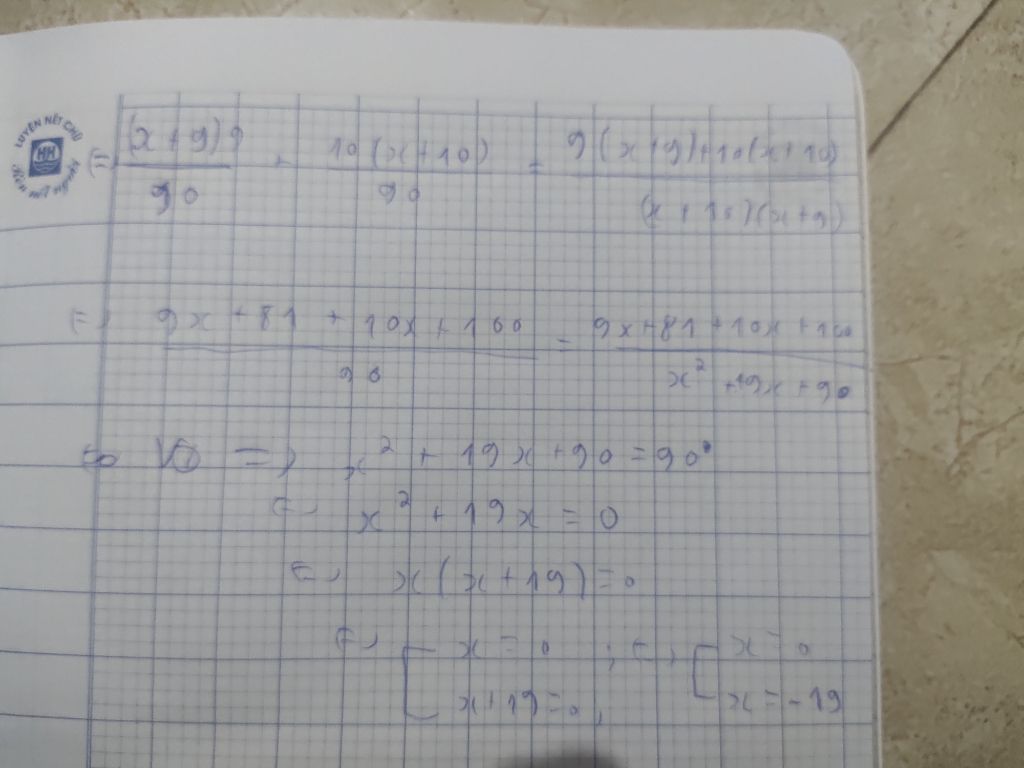 LUYỆN NÉT CHỮ
HH
Rèn nết người
(=) (x+9)9/90 + 10(x+10)/90 = 9(x+9)+10(x+10)/(x+10)(x+9)
(=) 9x+81+10x+100/90 = 9x+81+10x+100/x²+19x+90
=) x²+19x+90=90
(=) x²+19x=0
(=) x(x+19)=0
(=) [ x=0 ; (=) [ x=0
x+19=0, x=-19